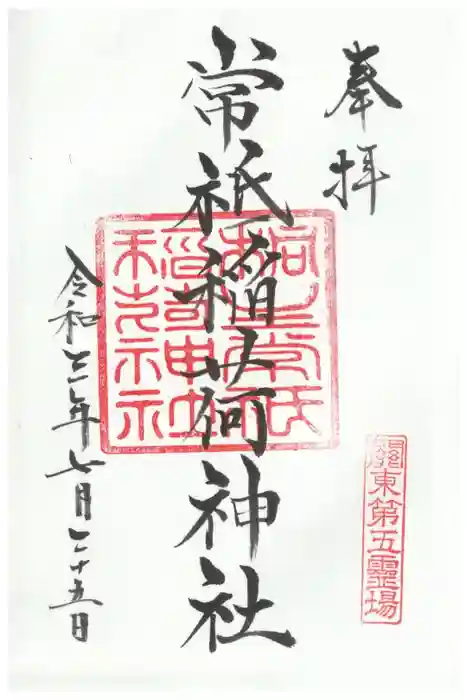 奉拝
關東第五靈場
常祇稲荷神社
令和三年七月二十五日